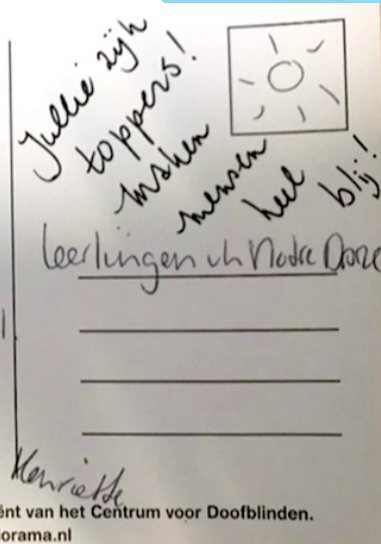 Jullie zijn
toppers!
maken
mensen
heel blij!
Leerlingen vh Notre Dame
Henriette
ënt van het Centrum voor Doofblinden.
orama.nl